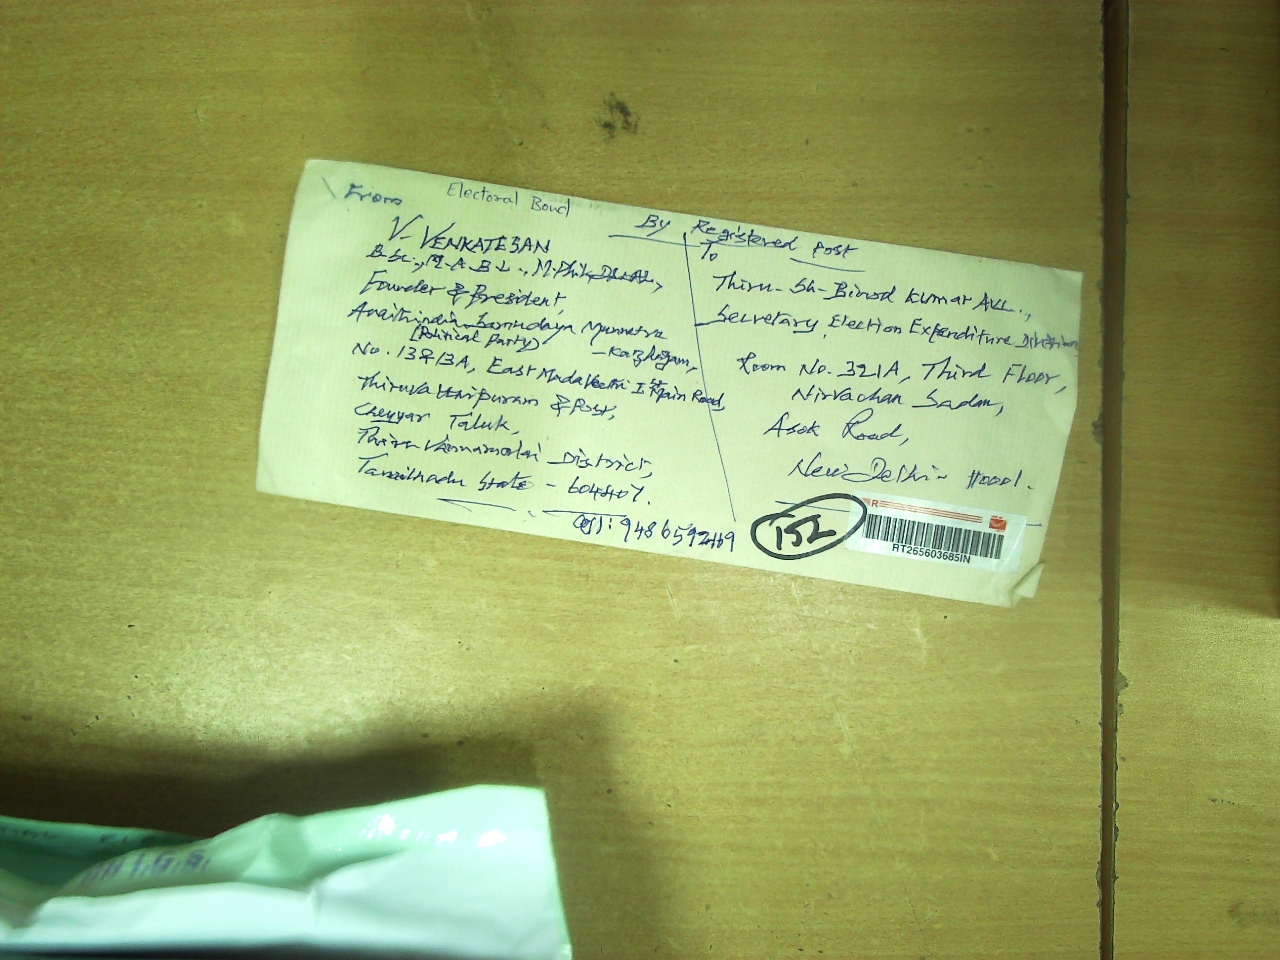 From
Electoral Bond
By Registered Post
V. VENKATESAN
B.Sc., M.A. B.L., M.Phil,
Founder & President,
Anaithindia Samudaya Munnetra
(Political Party) - Kazhagam,
No. 13 & 13A, East Mada Veethi Ist Main Road,
Thiruvathipuram & Post,
Cheyyar Taluk,
Thiruvannamalai District,
Tamilnadu State - 604407.
Cell: 9486592469
To
Thiru. Sh. Binod Kumar AVL.,
Secretary, Election Expenditure Division
Room No. 321A, Third Floor,
Nirvachan Sadan,
Asok Road,
New Delhi - 110001.
152
R
RT265603685IN